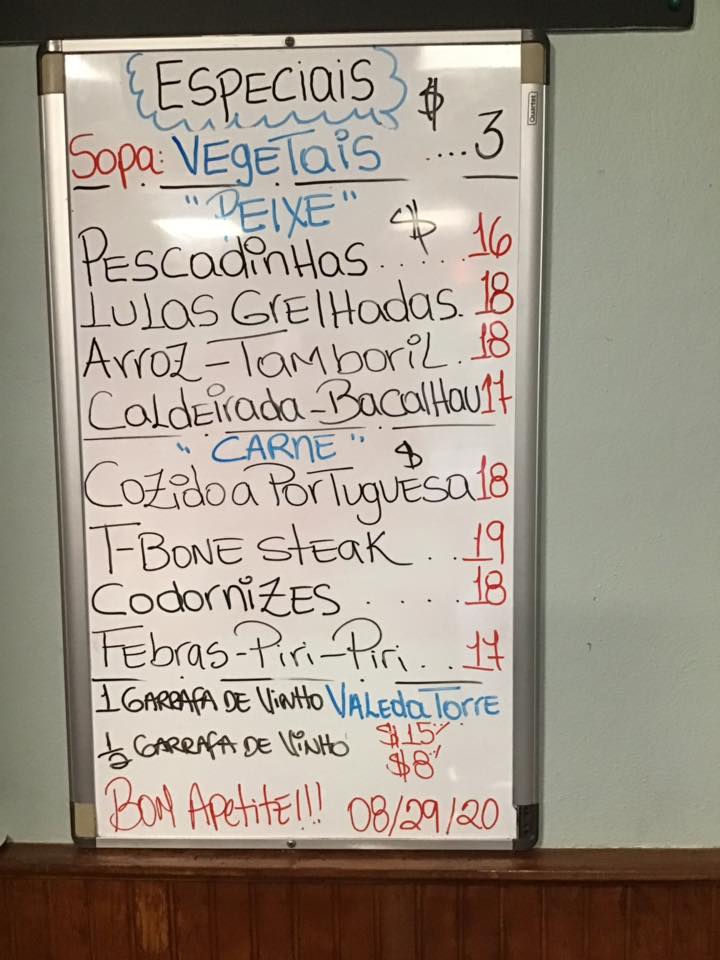 ESPECIAIS $
Sopa: VEgETAiS ....3
"PEIXE" $
PESCADiNHAS...... 16
LULAS GrElHadas. 18
Arroz-Tamboril. 18
CaldEirada-BacalHau 17
"CARNE" $
Cozido a PorTuguEsa 18
T-BONE STEAK .. 19
CodorniZES .... 18
FEbras-Piri-Piri.. 17
1 GARRAFA DE VINHO VALE da TorrE
$15
1/2 GARRAFA DE VINHO $8
BOM ApETiTE!!! 08/29/20
Quartet